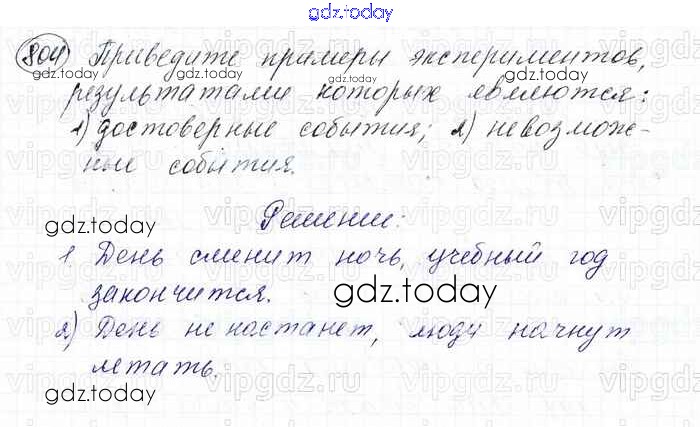 gdz.today
804) Приведите примеры экспериментов,
результатами которых являются:
1) достоверные события; 2) невозмож-
ные события.
Решение:
1. День сменит ночь, учебный год
закончится.
2) День не настанет, люди начнут
летать.
gdz.today
gdz.today
gdz.today
gdz.today
gdz.today
gdz.today
vipgdz.ru